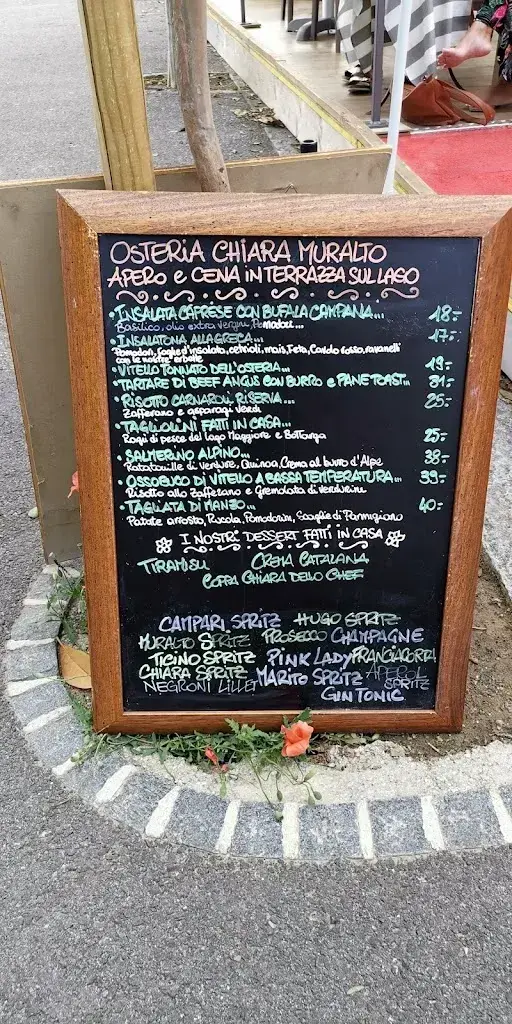 OSTERIA CHIARA MURALTO
APERO e CENA in TERRAZZA SUL LAGO
• INSALATA CAPRESE CON BUFALA CAMPANA... 18.-
Basilico, olio extra vergine, Pomodori...
• INSALATONA ALLA GRECA... 17.-
Pomodori, foglie d'insalata, cetrioli, mais, Feta, Cavolo rosso, ravanelli
con le nostre erbette
• VITELLO TONNATO DELL'OSTERIA... 19.-
• TARTARE DI BEEF ANGUS CON BURRO e PANE TOAST... 31.-
• RISOTTO CARNAROLI RISERVA... 25.-
Zafferano e asparagi verdi
• TAGLIOLINI FATTI IN CASA...
Ragù di pesce del lago Maggiore e Bottarga 25.-
• SALMERINO ALPINO... 38.-
Ratatouille di verdure, Quinoa, Crema al burro d'Alpe
• OSSOBUCO DI VITELLO A BASSA TEMPERATURA... 39.-
Risotto allo Zafferano e Gremolata di verdurine
• TAGLIATA DI MANZO... 40.-
Patate arrosto, Rucola, Pomodorini, Scaglie di Parmigiano
I NOSTRI DESSERT FATTI IN CASA
TIRAMISU CREMA CATALANA
COPPA CHIARA DELLO CHEF
CAMPARI SPRITZ HUGO SPRITZ
MURALTO SPRITZ PROSECCO CHAMPAGNE
TICINO SPRITZ PINK LADY FRANCIACORTA
CHIARA SPRITZ MARITO SPRITZ APEROL SPRITZ
NEGRONI LILLET GIN TONIC